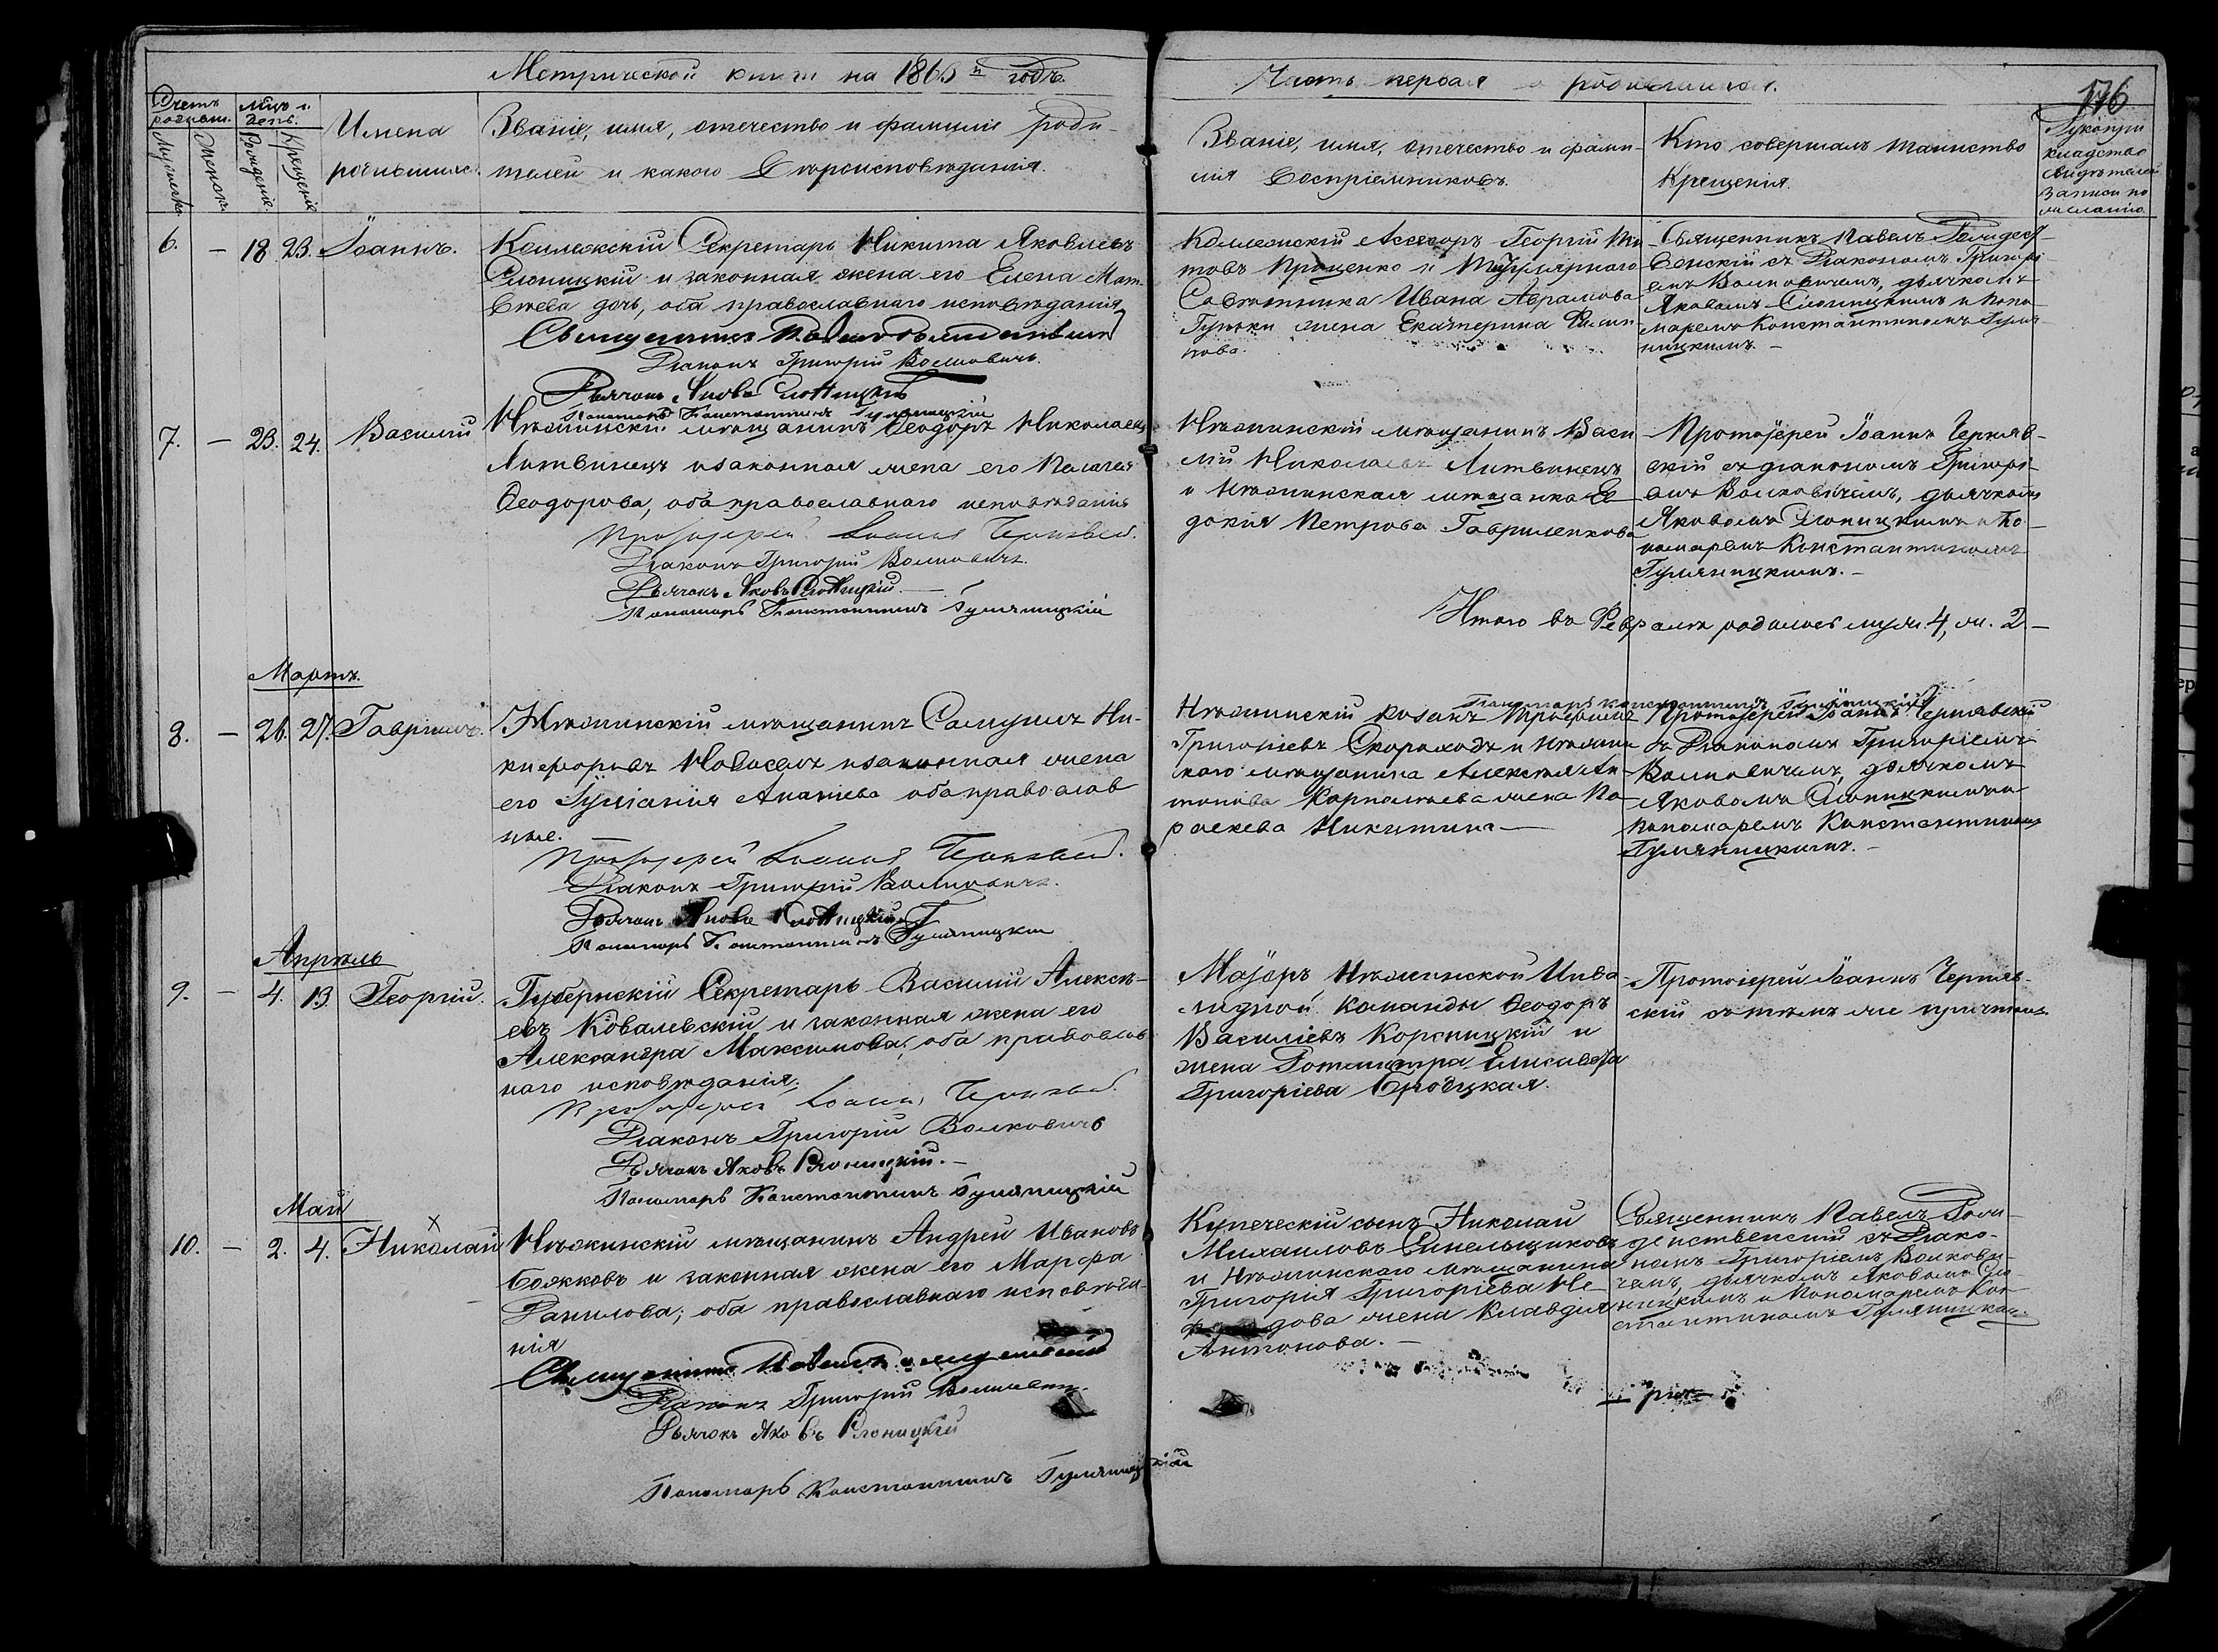 Метрической книги на 1865й годъ.
Часть первая о родившихся.
176
Счетъ родивш.
Мѣс. и день.
Мужеска.
Женска.
Рожденіе.
Крещеніе
Имена
родившихся.
Званіе, имя, отечество и фамилія роди-
телей и какого вѣроисповѣданія.
Званіе, имя, отечество и фами-
лия воспріемниковъ.
Кто совершалъ таинство
Крещенія.
Рукопри
кладство
свидѣтелей
записи по
желанію
6. — 18 23. Іоаннъ.
Коллежскій Секретарь Никита Яковлевъ
и законная жена его Елена Мат-
вѣева дочь, оба православнаго исповѣданія
Священникъ Павелъ
Діаконъ Григорій Волковичъ.
Дьячокъ Яковъ Слоницкій
Пономарь Константинъ Гуляницкій
Коллежскій Ассесоръ Георгій Ти-
товъ Проценко и Титулярнаго
Совѣтника Ивана Аврамова
жена Екатерина Филип
пова.
Священникъ Павелъ
съ Діакономъ Григорі
емъ Волковичемъ, дьячкомъ
Яковомъ Слоницкимъ и поно-
маремъ Константиномъ Гуля-
ницкимъ. —
7. — 23. 24. Василій
Нѣжинскій мѣщанинъ Ѳеодоръ Николаевъ
Литвинецъ и законная жена его Пелагея
Ѳеодорова, оба православнаго исповѣданія
Протоіерей Іоаннъ Чернявскій.
Діаконъ Григорій Волковичъ.
Дьячокъ Яковъ Слоницкій. —
Пономарь Константинъ Гуляницкій
Нѣжинскій мѣщанинъ Васи
лій Николаевъ Литвинецъ
и Нѣжинская мѣщанка Ев
докія Петрова Гавриленкова
Протоіерей Іоаннъ Черняв-
скій съ діакономъ Григорі-
емъ Волковичемъ, дьячкомъ
Яковомъ Слоницкимъ и По-
номаремъ Константиномъ
Гуляницкимъ. —
Итого въ Февралѣ родилось муж. 4, ж. 2. —
Мартъ.
8. — 26. 27. Гавріилъ.
Нѣжинскій мѣщанинъ Самуилъ Ни-
кифоровъ Новоселъ и законная жена
его Іуліанія Ананіева оба православ
ные.
Протоіерей Іоаннъ Чернявскій.
Діаконъ Григорій Волковичъ.
Дьячокъ Яковъ Слоницкій
Пономарь Константинъ Гуляницкій
Пономарь Константинъ Гуляницкій
Нѣжинскій козакъ Трофимъ
Григоріевъ Скороходъ и Нѣжин
скаго мѣщанина Алексѣя Ан-
тонова жена Па-
раскева Никитина —
Протоіерей Іоаннъ Чернявскій
съ Діакономъ Григоріемъ
Волковичемъ, дьячкомъ
Яковомъ Слоницкимъ и
пономаремъ Константиномъ
Гуляницкимъ. —
Апрѣль
9. — 4. 13. Георгій.
Губернскій Секретарь Василій Алексѣ-
евъ Ковалевскій и законная жена его
Александра Максимова, оба православ
наго исповѣданія.
Протоіерей Іоаннъ Чернявскій.
Діаконъ Григорій Волковичъ
Дьячокъ Яковъ Слоницкій. —
Пономарь Константинъ Гуляницкій
Маіоръ Нѣжинской Инва-
лидной команды Ѳеодоръ
Василіевъ Корсницкій и
жена Ротмистра Елисавета
Григоріева Бродцкая.
Протоіерей Іоаннъ Черняв-
скій съ тѣмъ же причтомъ
Май
10. — 2. 4. Николай
Нѣжинскій мѣщанинъ Андрей Ивановъ
Божковъ и законная жена его Марѳа
Данилова; оба православнаго исповѣда
нія
Священникъ Павелъ
Діаконъ Григорій Волковичъ.
Дьячокъ Яковъ Слоницкій
Пономарь Константинъ Гуляницкій
Купеческій сынъ Николай
Михаиловъ Синельщиковъ
и Нѣжинскаго мѣщанина
Григорія Григоріева
жена Клавдия
Антонова. —
Священникъ Павелъ
съ Діако-
номъ Григоріемъ Волкови-
чемъ, дьячкомъ Яковомъ Сло
ницкимъ и Пономаремъ Кон
стантиномъ Гуляницким.